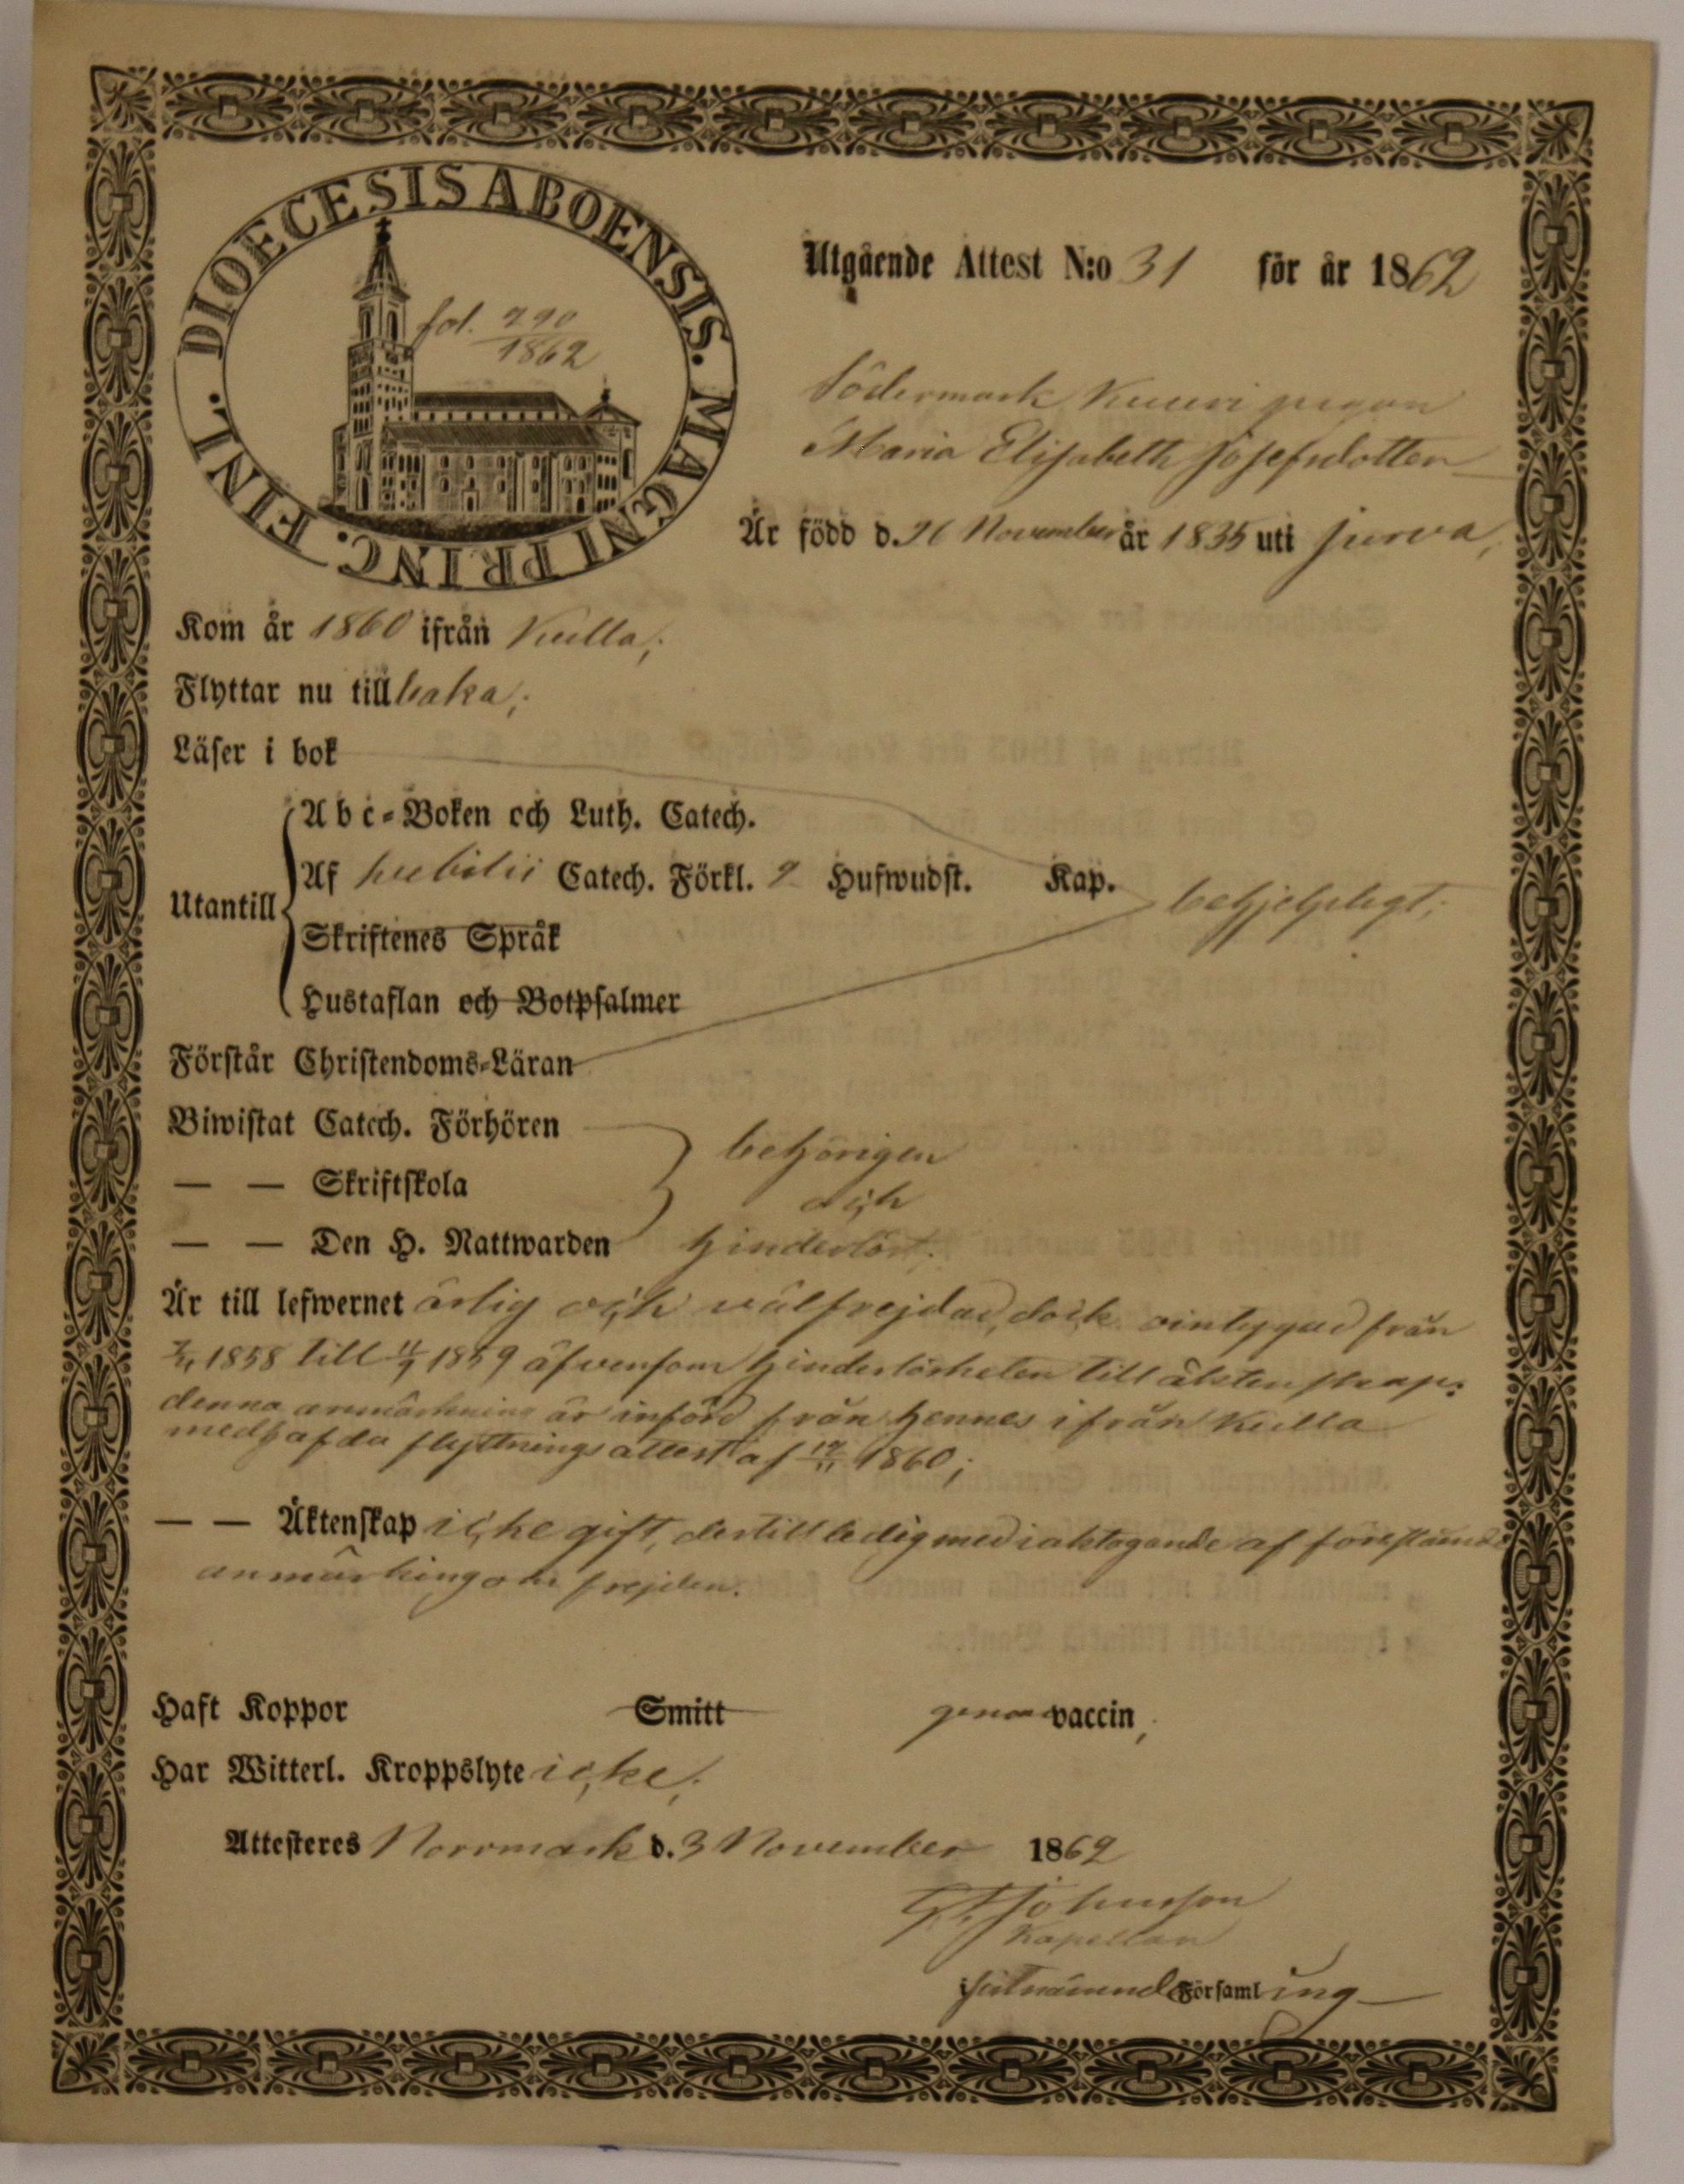 DIOECESIS ABOENSIS. MAGNI PRINC. FINL.
fol. 290
1862
Utgående Attest N:o 31 för år 1862
Södermark Kuuri pigan
Maria Elisabeth Josefsdotter
Är född d. 26 November år 1835 uti Jurva,
Kom år 1860 ifrån Kulla;
Flyttar nu tillbaka;
Läser i bok
Abc-Boken och Luth. Catech.
Utantill
Af Catech. Förkl. 2 Hufwudst. Kap.
behjelpligt;
Skriftenes Språk
Hustaflan och Botpsalmer
Förstår Christendoms-Läran
Biwistat Catech. Förhören
behörigen
— — Skriftskola
och
— — Den H. Nattwarden
hinderlöst;
Är till lefwernet ärlig och välfrejdad, dock från
1858 till 1859 äfvensom hinderlösheten till äktenskap;
denna anmärkning är införd från hennes ifrån Kulla
medhafda flyttningsattest af 1860;
— — Äktenskap icke gift, dertill ledig med iakttagande af
anmärkning om frejden.
Haft Koppor Smitt genom vaccin;
Har Witterl. Kroppslyte icke;
Attesteres Norrmark d. 3 November 1862
Johnsson
Kapellan
Församling